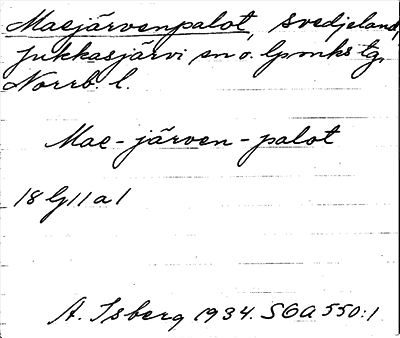 Maejärvenpalot, svedjeland,
Jukkasjärvi sn o. lpmks tg,
Norrb. l.
Mae-järven-palot
18 G11a1
A. Isberg 1934. SOA 550:1